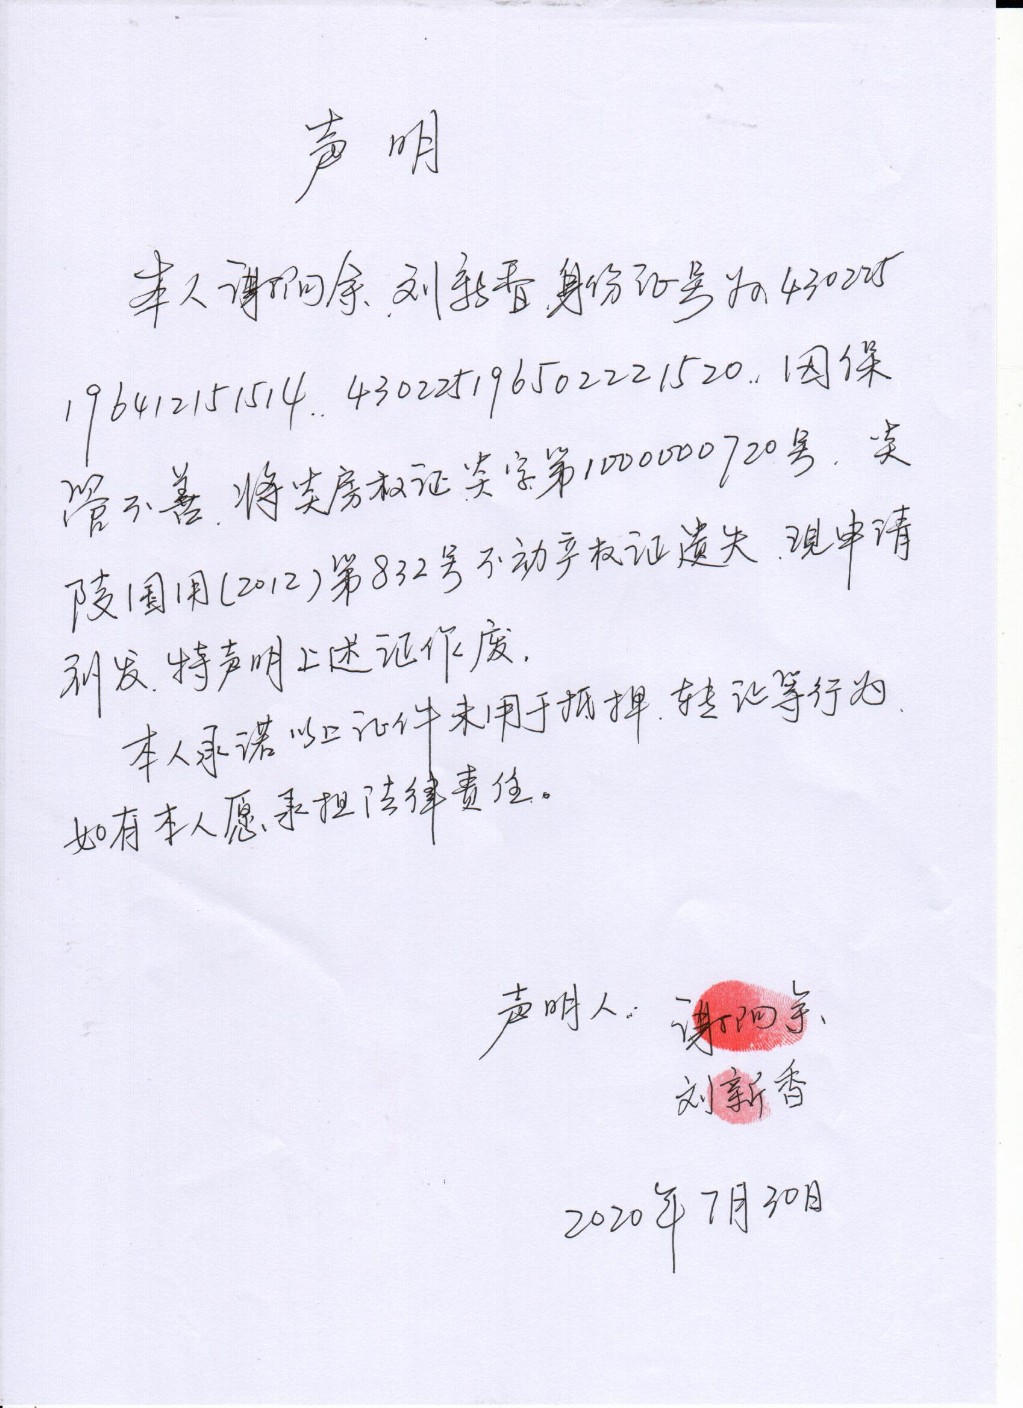 声明
本人谢阳余、刘新香,身份证号为430225
196412151514、430225196502221520、因保
管不善,将炎房权证炎字第1000000720号、炎
陵国用(2012)第832号不动产权证遗失,现申请
补发,特声明上述证作废,
本人承诺以上证件未用于抵押、转让等行为,
如有本人愿承担法律责任。
声明人:谢阳余、
刘新香
2020年7月30日